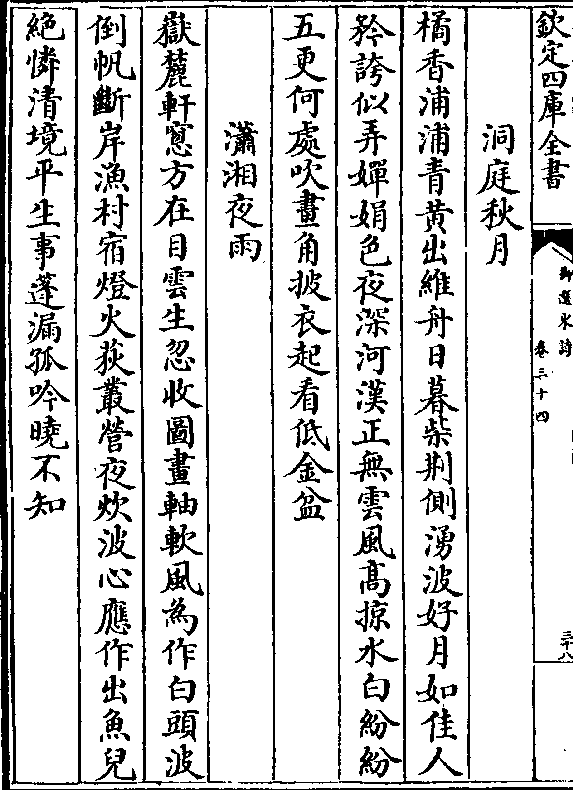 欽定四庫全書
御選宋詩
卷三十四
三十八
洞庭秋月
橘香浦浦青黃出維舟日暮柴荆側湧波好月如佳人
矜誇似弄嬋娟色夜深河漢正無雲風髙掠水白紛紛
五更何處吹畫角披衣起看低金盆
瀟湘夜雨
嶽麓軒窻方在目雲生忽收圖畫軸軟風為作白頭波
倒帆斷岸漁村宿燈火荻叢營夜炊波心應作出魚兒
絶憐清境平生事蓬漏孤吟曉不知